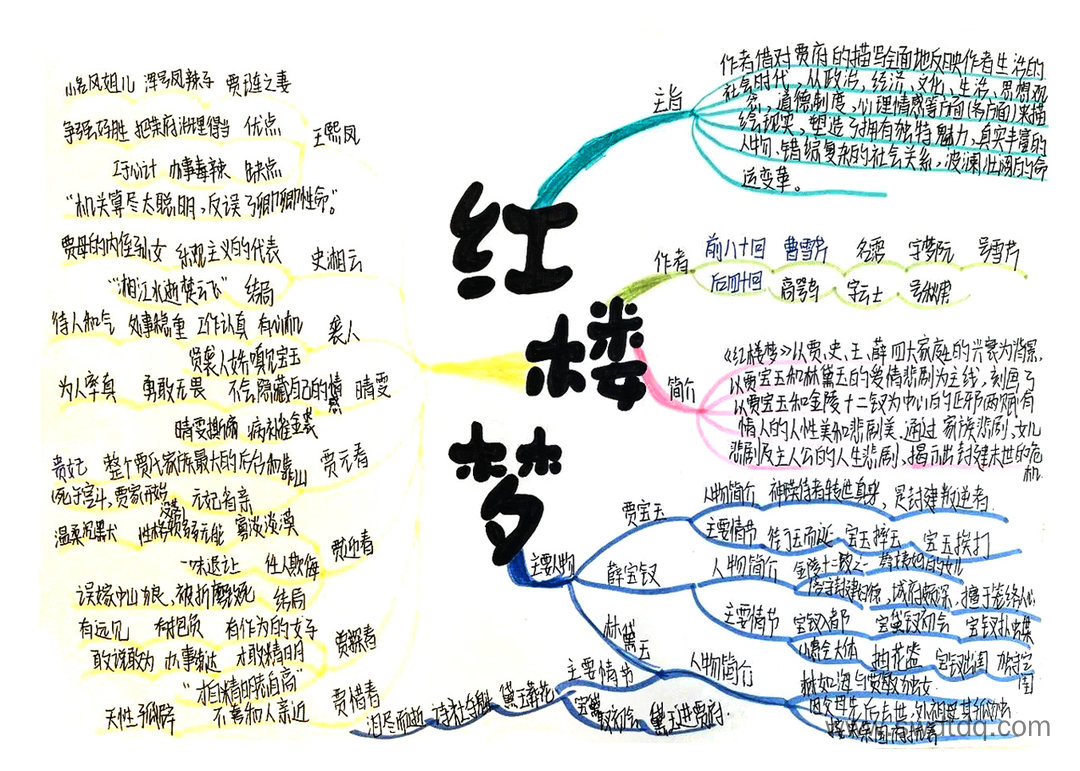 红
楼
梦
主旨
作者借对贾府的描写全面地反映作者生活的
社会时代，从政治、经济、文化、生活、思想观
念，道德制度，心理情感等方面(各方面)来描
绘现实，塑造了拥有独特魅力，真实丰富的
人物、错综复杂的社会关系，波澜壮阔的命
运变革。
作者
前八十回 曹雪芹 名霑 字梦阮 号雪芹
后四十回 高鹗 字云士 号秋甫
简介
《红楼梦》以贾、史、王、薛四大家庭的兴衰为背景，
以贾宝玉和林黛玉的爱情悲剧为主线，刻画了
以贾宝玉和金陵十二钗为中心的正邪两赋有
情人的人性美和悲剧美。通过家族悲剧、女儿
悲剧及主人公的人生悲剧，揭示出封建末世的危
机
主要人物
贾宝玉
人物简介 神瑛侍者转世身，是封建叛逆者.
主要情节 衔玉而诞 宝玉摔玉 宝玉挨打
薛宝钗
人物简介 金陵十二钗之一
，城府颇深，擅于笼络人心
主要情节 宝钗入都 宝黛钗初会 宝钗扑蝶
小惠全大体
林黛玉
人物简介
林如海与贾敏
因父母先后去世，外祖母其孤独
主要情节
黛玉进贾府.
黛玉葬花
泪尽而逝
王熙凤
小名凤姐儿 浑号凤辣子 贾琏之妻
争强好胜 把荣府治理得当 优点
巧心计 办事毒辣 缺点
“机关算尽太聪明，反误了卿卿性命。”
史湘云
贾母的内侄孙女 乐观主义的代表
“湘江水逝楚云飞” 结局
袭人
待人和气 处事稳重 工作认真 有心机
贤袭人娇嗔见宝玉
晴雯
为人率真 勇敢无畏 不会隐藏自己的情感
晴雯撕扇 病补雀金裘
贾元春
贵妃 整个贾氏家族最大的后台和靠山
死于宫斗，贾家开始没落 元妃省亲
贾迎春
温柔沉默 性格懦弱无能 寡淡淡漠
一味退让 任人欺侮
误嫁中山狼，被折磨致死 结局
贾探春
有远见 有抱负 有作为的女子
敢说敢为 办事练达 才敢精明
“才自精明志自高”
贾惜春
天性孤僻 不喜和人亲近